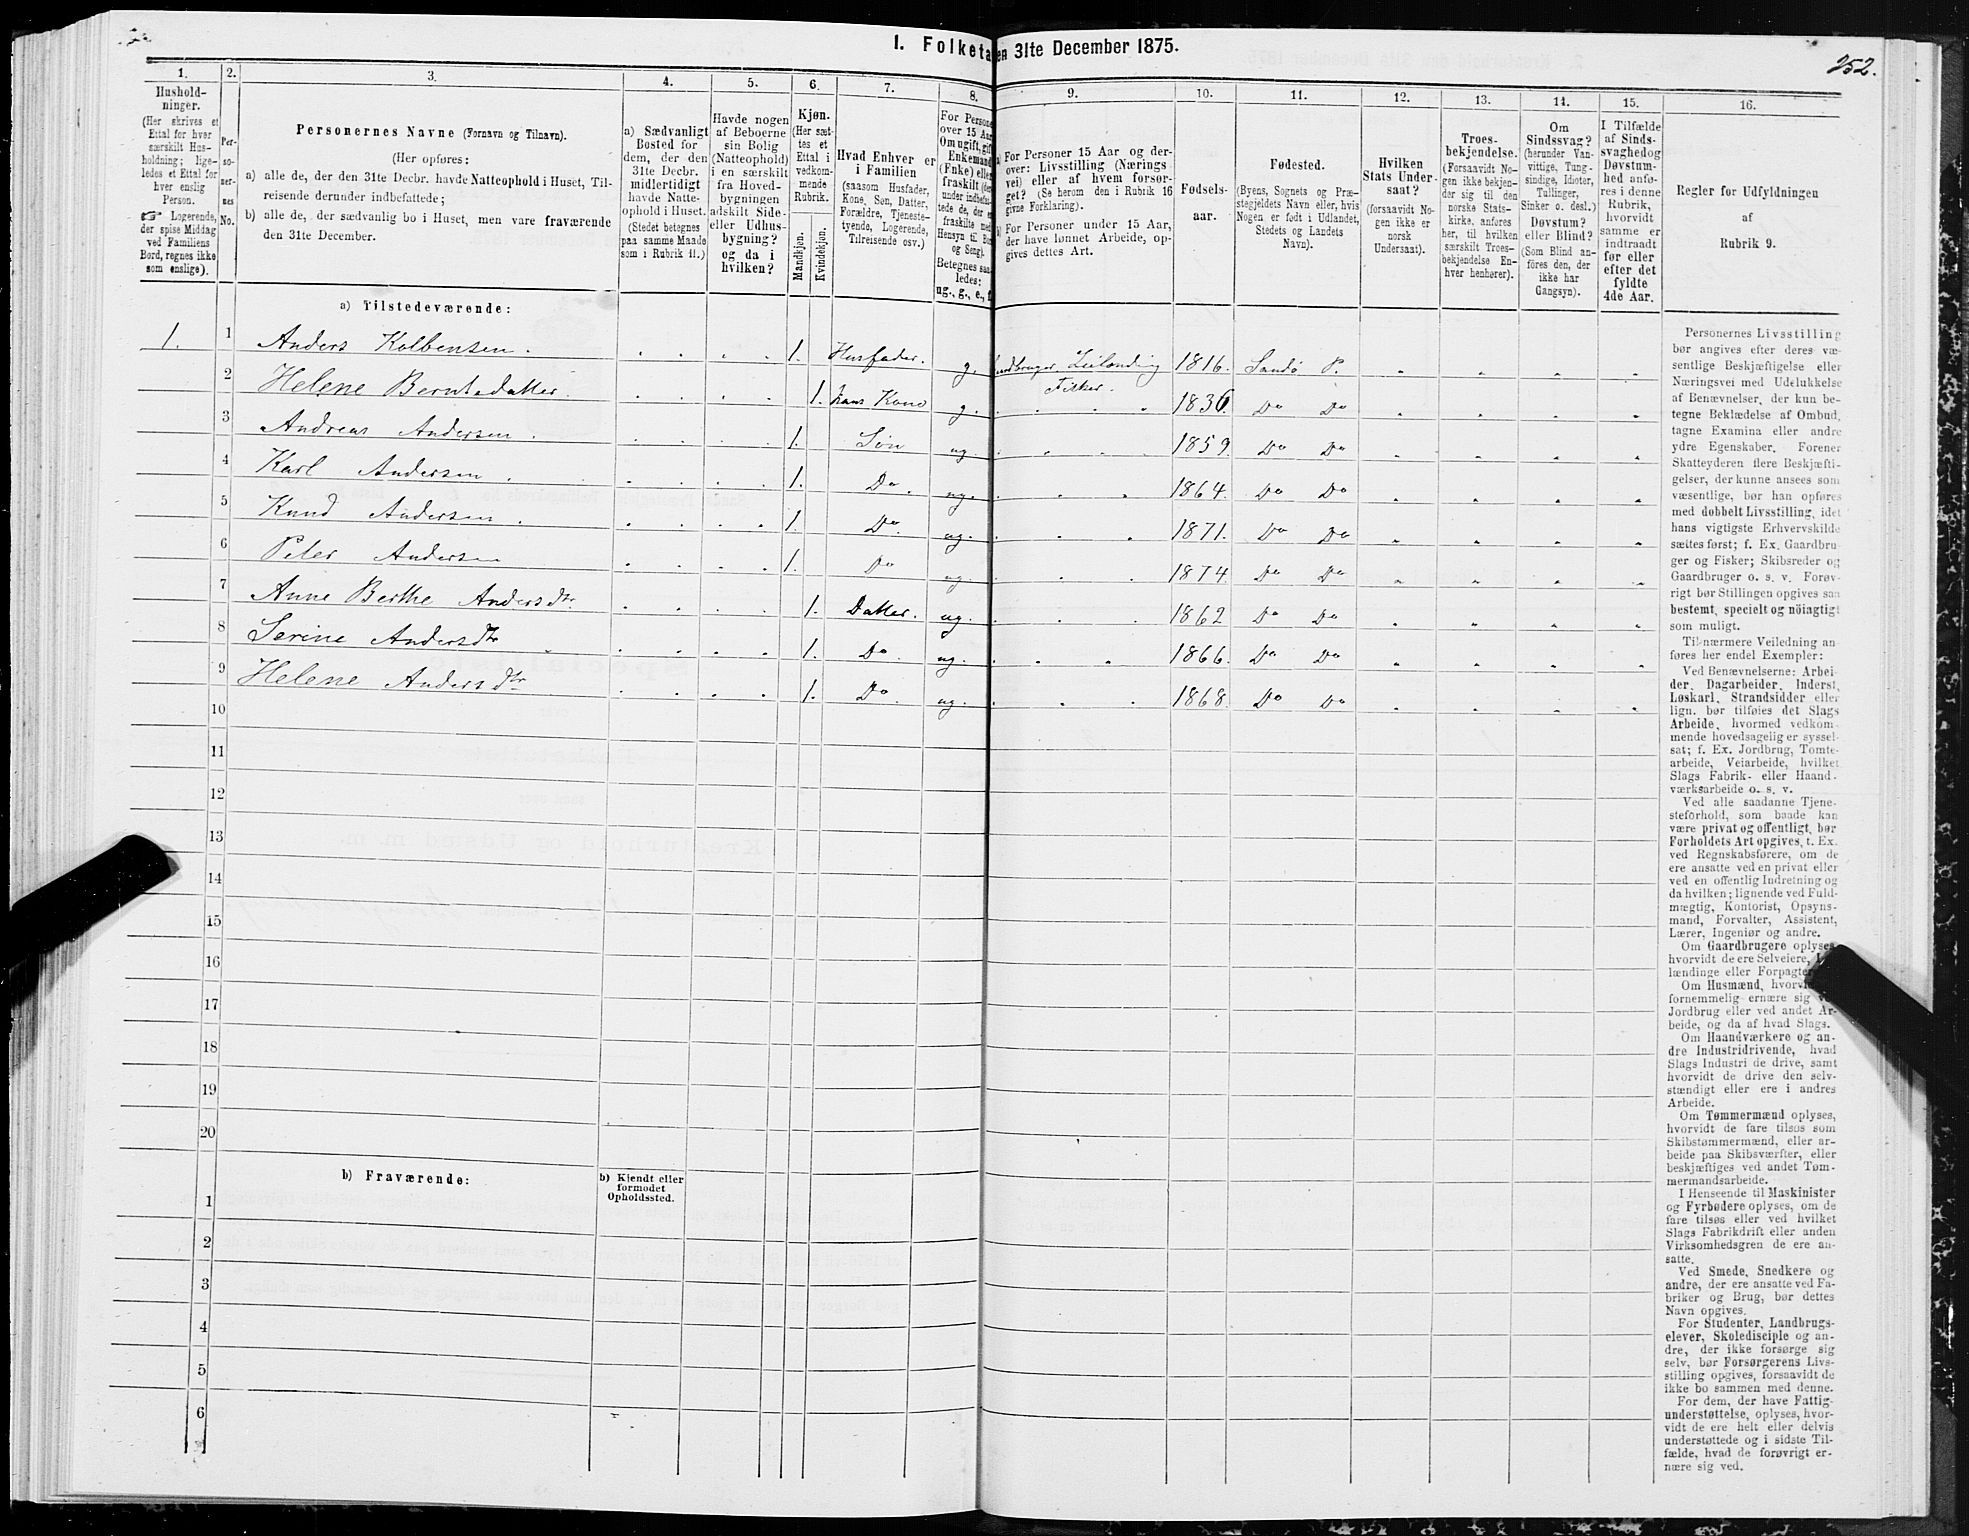 I. Folketa en 31te December 1875.
252.
1.
2.
3.
4.
5.
6.
7.
8.
9.
10.
11.
12.
13.
14.
15.
16.
Hushold-
ninger.
(Her skrives et
Ettal for hver
særskilt Hus-
holdning; lige-
ledes et Ettal for
hver enslig
Person.
☞ Logerende,
der spise Middag
ved Familiens
Bord, regnes ikke
som enslige).
Per-
so-
ner-
nes
No.
Personernes Navne (Fornavn og Tilnavn).
(Her opføres:
a) alle de, der den 31te Decbr. havde Natteophold i Huset, Til-
reisende derunder indbefattede;
b) alle de, der sædvanlig bo i Huset, men vare fraværende
den 31te December.
a) Sædvanligt
Bosted for
dem, der den
31te Decbr.
midlertidigt
havde Natte-
ophold i Huset.
(Stedet betegnes
paa samme Maade
som i Rubrik 11.)
Havde nogen
af Beboerne
sin Bolig
(Natteophold)
i en særskilt
fra Hoved-
bygningen
adskilt Side-
eller Udhus-
bygning?
og da i
hvilken?
Kjøn.
(Her sæt-
tes et
Ettal i
vedkom-
mende
Rubrik.
Mandkjøn.
Kvindekjøn.
Hvad Enhver er
i Familien
(saasom Husfader,
Kone, Søn, Datter,
Forældre, Tjeneste-
tyende, Logerende,
Tilreisende osv.)
For Persone
over 15 Aar
Om ugift, gift
Enkemand
(Enke) eller
fraskilt (der
under indbefat-
tede de, der e
fraskilte med
Hensyn til Bo
og Seng).
Betegnes saa
ledes:
ug., g., e., f.
a) For Personer 15 Aar og der-
over: Livsstilling (Nærings
vei) eller af hvem forsør-
get? (Se herom den i Rubrik 16
givne Forklaring).
b) For Personer under 15 Aar,
der have lønnet Arbeide, op-
gives dettes Art.
Fødsels-
aar.
Fødested.
(Byens, Sognets og Præ-
stegjeldets Navn eller, hvis
Nogen er født i Udlandet,
Stedets og Landets
Navn).
Hvilken
Stats Under-
saat?
(forsaavidt No-
gen ikke er
norsk
Undersaat).
Troes-
bekjendelse.
(Forsaavidt No-
gen ikke bekjen-
der sig til den
norske Stats-
kirke, anføres
her, til hvilken
særskilt Troes-
bekjendelse En-
hver henhører).
Om
Sindssvag?
(herunder Van-
vittige, Tung-
sindige, Idioter,
Tullinger,
Sinker o. desl.)
Døvstum?
eller Blind?
(Som Blind an-
føres den, der
ikke har
Gangsyn).
I Tilfælde
af Sinds-
svaghedog
Døvstum-
hed anfø-
res i denne
Rubrik,
hvorvidt
samme er
indtraadt
før eller
efter det
fyldte
4de Aar.
Regler for Udfyldningen
af
Rubrik 9.
a) Tilstedeværende:
1. 1 Anders Kolbensen. 1. Husfader. g. Leilænding 1816. Sandø P.
Fisker.
2 Helene Berntsdatter. 1. hans Kone g. 1836. Do Do
3 Andreas Andersen. 1. Søn ug. 1859. Do Do
4 Karl Andersen. 1. Do. ug. 1864. Do Do
5 Knud Andersen. 1. Do. ug. 1871. Do Do
6 Peter Andersen 1. Do ug 1874. Do Do
7 Anne Berthe Andersdtr. 1. Datter. ug. 1862 Do Do
8 Serine Andersdtr 1. Do. ug. 1866. Do Do
9 Helene Andersdtr 1. Do. ug. 1868. Do Do
10
11
12
13
14
15
16
17
18
19
20
b) Fraværende:
b) Kjendt eller
formodet
Opholdssted.
1
2
3
4
5
6
Personernes Livsstilling
bør angives efter deres væ-
sentlige Beskjæftigelse eller
Næringsvei med Udelukkelse
af Benævnelser, der kun be-
tegne Beklædelse af Ombud,
tagne Examina eller andre
ydre Egenskaber. Forener
Skatteyderen flere Beskjæfti-
gelser, der kunne ansees som
væsentlige, bør han opføres
med dobbelt Livsstilling, idet
hans vigtigste Erhvervskilde
sættes først; f. Ex. Gaardbru-
ger og Fisker; Skibsreder og
Gaardbruger o. s. v. Forøv-
rigt bør Stillingen opgives saa
bestemt, specielt og nøiagtigt
som muligt.
Til nærmere Veiledning an-
føres her endel Exempler:
Ved Benævnelserne: Arbei-
der, Dagarbeider, Inderst,
Løskarl, Strandsidder eller
lign. bør tilføies det Slags
Arbeide, hvormed vedkom-
mende hovedsagelig er syssel-
sat; f. Ex. Jordbrug, Tomte-
arbeide, Veiarbeide, hvilket
Slags Fabrik- eller Haand-
værksarbeide o. s. v.
Ved alle saadanne Tjene-
steforhold, som baade kan
være privat og offentligt, bør
Forholdets Art opgives, t. Ex.
ved Regnskabsførere, om de
ere ansatte ved en privat eller
ved en offentlig Indretning og
da hvilken; lignende ved Fuld-
mægtig, Kontorist, Opsyns-
mand, Forvalter, Assistent,
Lærer, Ingeniør og andre.
Om Gaardbrugere oplyses,
hvorvidt de ere Selveiere,
lændinge eller
Om Husmænd,
fornemmelig ernære sig
Jordbrug eller ved andet Ar-
beide, og da af hvad Slags.
Om Haandværkere og an-
dre Industridrivende, hvad
Slags Industri de drive, samt
hvorvidt de drive den selv-
stændigt eller ere i andres
Arbeide.
Om Tømmermænd oplyses,
hvorvidt de fare tilsøs som
Skibstømmermænd, eller ar-
beide paa Skibsværfter, eller
beskjæftiges ved andet Tøm-
mermandsarbeide.
I Henseende til Maskinister
og Fyrbødere oplyses, om de
fare tilsøs eller ved hvilket
Slags Fabrikdrift eller anden
Virksomhedsgren de ere an-
satte.
Ved Smede, Snedkere og
andre, der ere ansatte ved Fa-
briker og Brug, bør dettes
Navn opgives.
For Studenter, Landbrugs-
elever, Skoledisciple og an-
dre, der ikke forsørge sig
selv, bør Forsørgerens Livs-
stilling opgives, forsaavidt de
ikke bo sammen med denne.
For dem, der have Fattig-
understøttelse, oplyses, hvor-
vidt de ere helt eller delvis
understøttede og i sidste Til-
fælde, hvad de forøvrigt er-
nære sig ved.